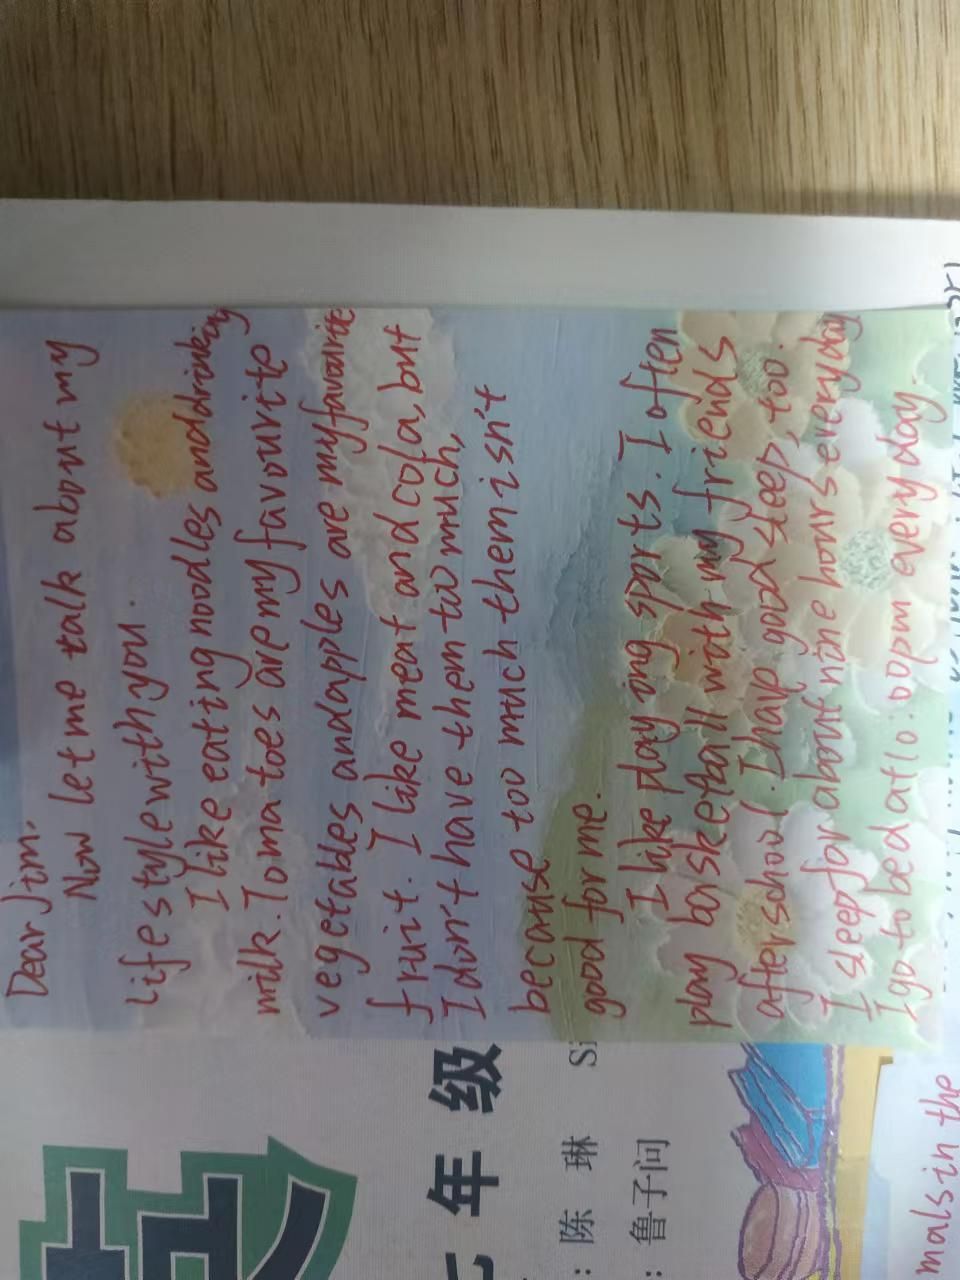 Dear Jim,
Now let me talk about my
life style with you.
I like eating noodles and drinking
milk. Tomatoes are my favourite
vegetables and apples are my favourite
fruit. I like meat and cola, but
I don't have them too much,
because too much them isn't
good for me.
I like playing sports. I often
play basketball with my friends
after school. I have good sleep, too.
I sleep for about nine hours every day
I go to bed at 10:00pm every day.
年 级
陈 琳
: 鲁子问
mals in the